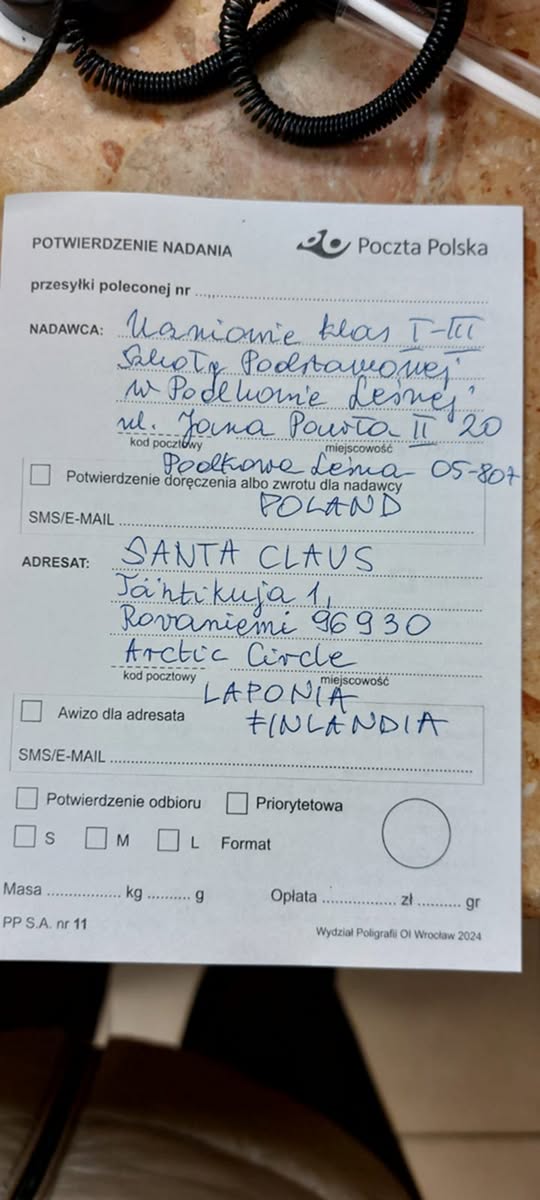 POTWIERDZENIE NADANIA
Poczta Polska
przesyłki poleconej nr
NADAWCA: Uczniowie klas I-III
Szkoły Podstawowej
w Podkowie Leśnej
ul. Jana Pawła II 20
kod pocztowy miejscowość
Podkowa Leśna 05-807
Potwierdzenie doręczenia albo zwrotu dla nadawcy
POLAND
SMS/E-MAIL
ADRESAT: SANTA CLAUS
Tähtikuja 1,
Rovaniemi 96930
Arctic Circle
kod pocztowy miejscowość
LAPONIA
Awizo dla adresata
FINLANDIA
SMS/E-MAIL
Potwierdzenie odbioru Priorytetowa
S M L Format
Masa kg g Opłata zł gr
PP S.A. nr 11
Wydział Poligrafii OI Wrocław 2024